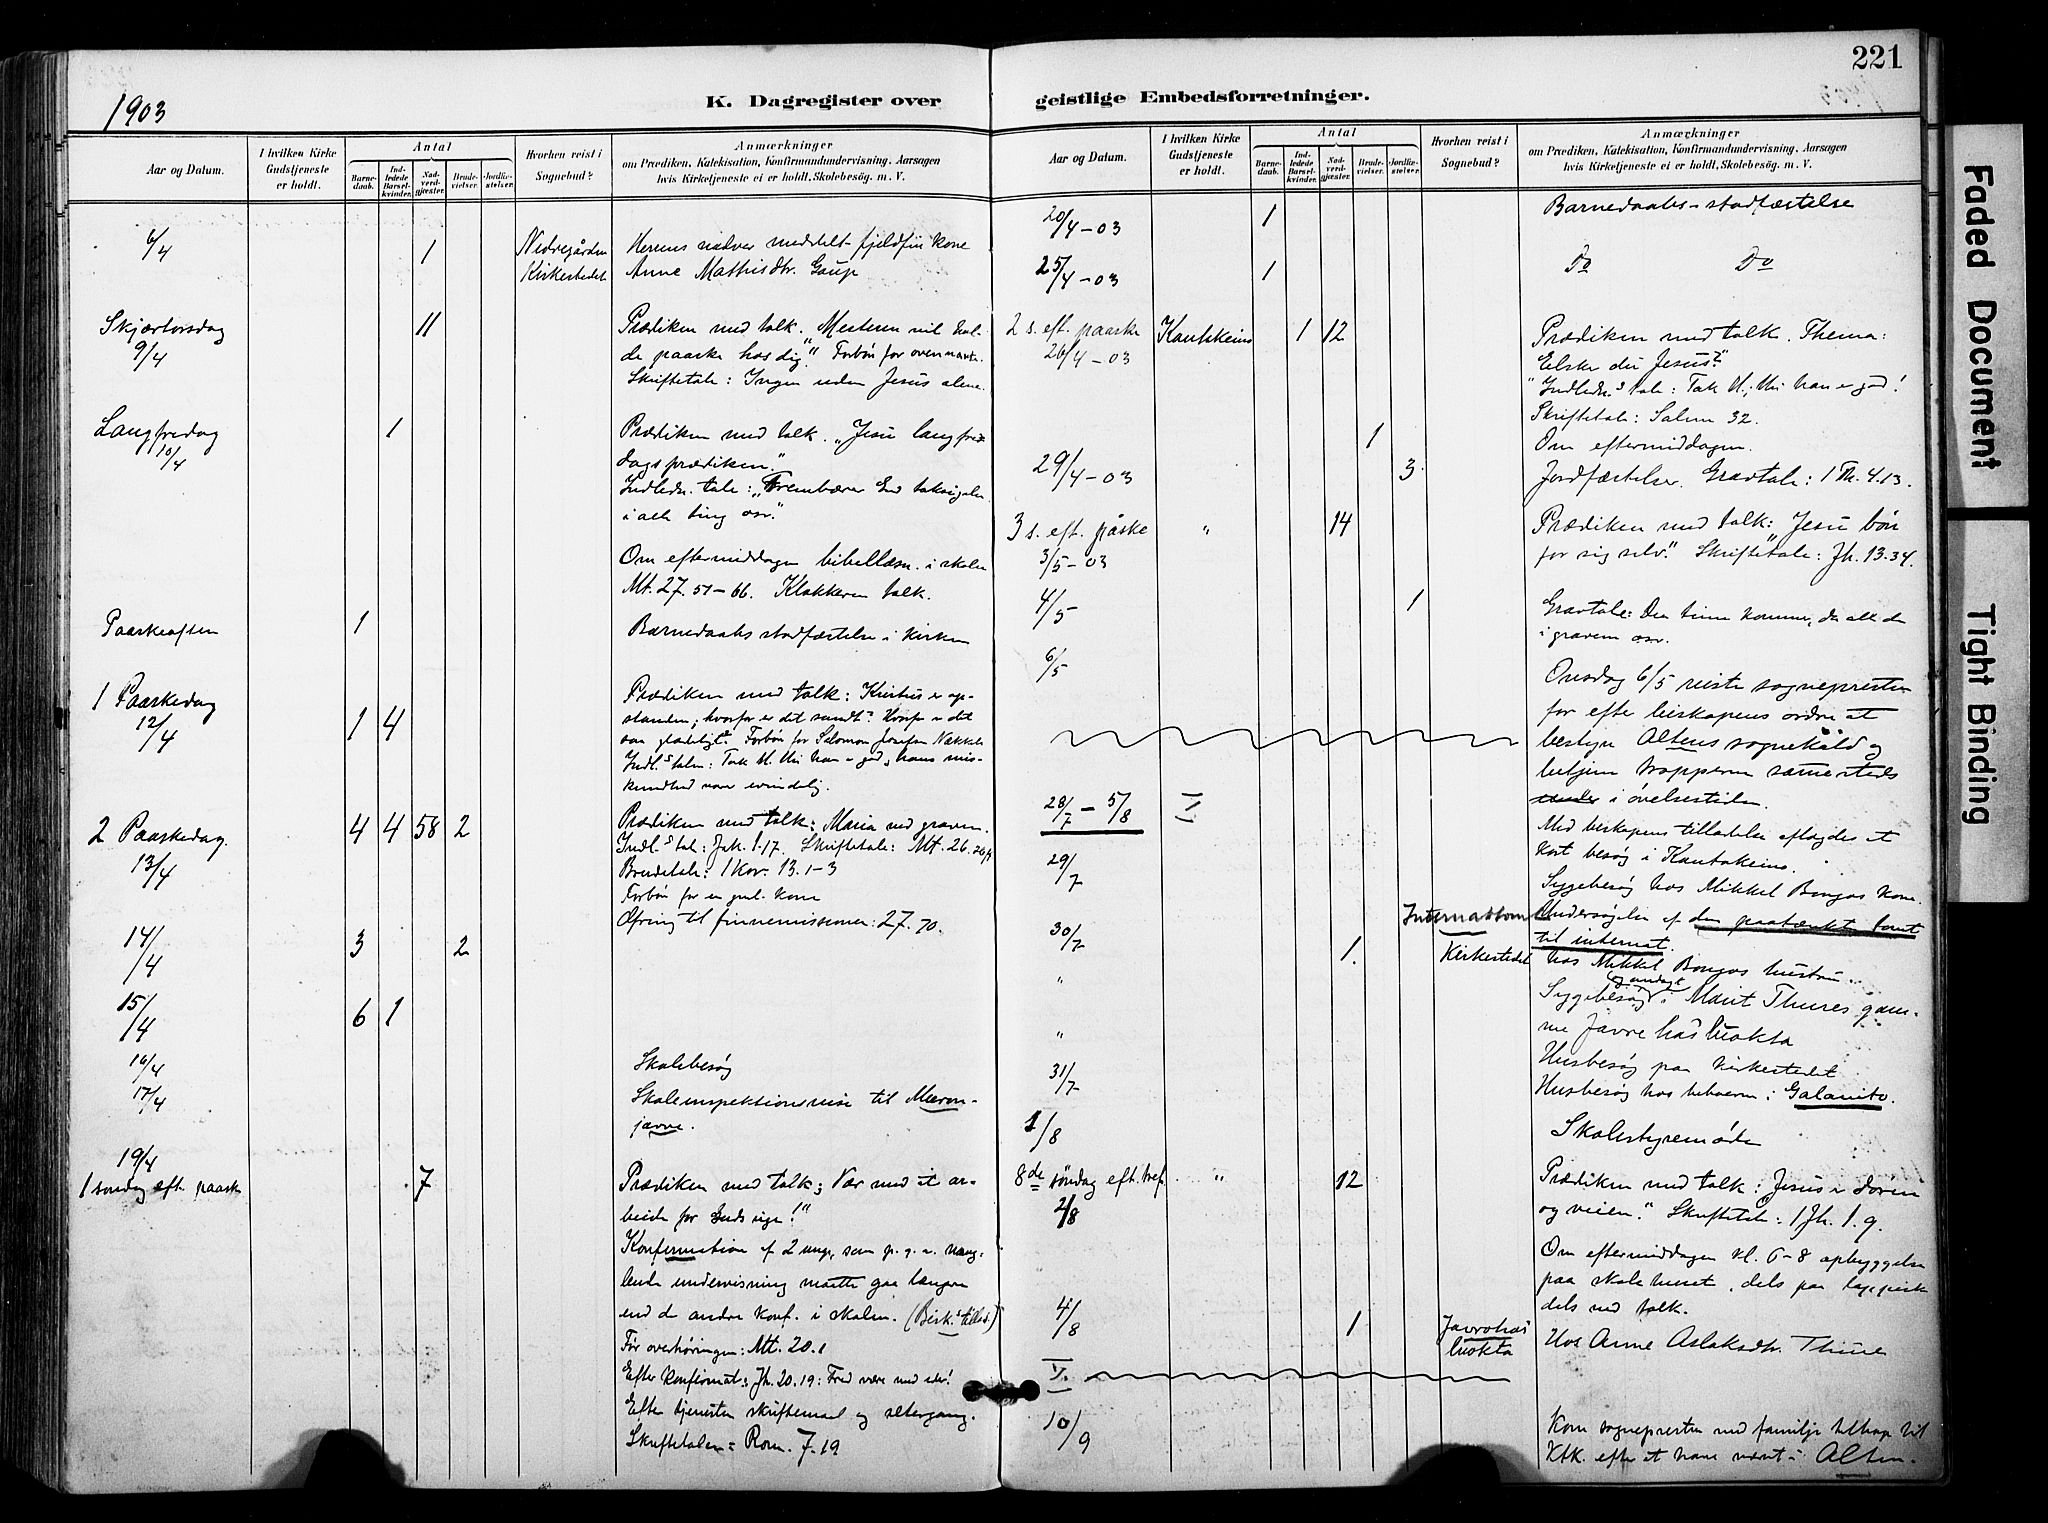 221
1903
K. Dagregister over
geistlige Embedsforretninger.
Aar og Datum.
I hvilken Kirke Gudstjeneste er holdt.
Antal
Barnedaab.
Indledede Barselkvinder.
Nadverdgjæster.
Brudevielser.
Jordfæstelser.
Hvorhen reist i Sognebud?
Anmærkninger
om Prædiken, Katekisation, Konfirmandundervisning, Aarsagen
hvis Kirketjeneste ei er holdt, Skolebesög. m. V.
6/4 1 Nedregården Herrens nadver meddelt fjeldfin kone
Kirkestedet Anne Mathisdtr. Gaup
Skjærtorsdag 11 Prædiken med tolk. "Mesteren vil hol-
9/4 de paaske hos dig." Forbøn for
Skriftetale: Ingen uden Jesus alene.
Langfredag 1 Prædiken med tolk. "Jesu langfre-
10/4 dagsprædiken."
Indledn. tale: "Frembærer Gud taksigelse
i alle ting osv."
Om eftermiddagen bibellæsn. i skolen
Mt. 27. 51-66. Klokkeren tolk.
Paaskeaften 1 Barnedaabs stadfæstelse i kirken
1 Paaskedag 1 4 Prædiken med tolk: Kristus er op-
12/4 standen; hvorfor er det sandt? Hvorfor er det
saa glædeligt? Forbøn for Salomon Josefsen Nækkele
Indl.s tale: Tak H. thi han er god, hans mis-
kundhed varer evindelig.
2 Paaskedag. 4 4 58 2 Prædiken med tolk: Maria ved graven.
13/4 Indl.s tale: Jak. 1.17. Skriftetale: Mt. 26.
Brudetale: 1 Kor. 13. 1-3
Forbøn for en gml. kone
Ofring til finnemissionen: 27.70.
14/4 3 2
15/4 6 1
16/4 Skolebesøg
17/4 Skoleinspektionsreise til Mieron-
javre.
19/4
1 søndag eft. paaske 7 Prædiken med tolk: Vær med i at ar-
beide for Guds rige!"
Konfirmation af 2 unge, som p. g. a. mang-
lende undervisning maatte gaa længere
end de andre konf. i skolen. (Bisk.s tillad.)
Før overhøringen: Mt. 20.1
Efter konfirmat.: Jh. 20.19: Fred være med eder!
Efter tjenesten skriftemaal og altergang.
Skriftetalen: Rom. 7.19
Aar og Datum.
I hvilken Kirke Gudstjeneste er holdt.
Antal
Barnedaab.
Indledede Barselkvinder.
Nadverdgjæster.
Brudevielser.
Jordfæstelser.
Hvorhen reist i Sognebud?
Anmærkninger
om Prædiken, Katekisation, Konfirmandundervisning, Aarsagen
hvis Kirketjeneste ei er holdt, Skolebesög. m. V.
20/4-03 1 Barnedaabs-stadfæstelse
25/4-03 1 Do Do
2 s. eft. paaske Kautokeino 1 12 Prædiken med tolk. Thema:
26/4-03 Elsker du Jesus?"
"Indledn.s tale: Tak H., thi han er god!
Skriftetale: Salme 32.
1 Om eftermiddagen.
29/4-03 3 Jordfæstelser. Gravtale: 1 Th. 4.13.
3 s. eft. påske " 14 Prædiken med tolk: Jesu bøn
3/5-03 for sig selv." Skriftetale: Jh. 13.34.
4/5 1 Gravtale: Den time kommer, da alle de
i graven osv.
6/5 Onsdag 6/5 reiste sognepresten
for efter biskopens ordre at
bestyre Altens sognekald og
betjene tropperne sammesteds
i øvelsestiden.
28/7 - 5/8 Med biskopens tilladelse aflagdes et
kort besøg i Kautokeino.
29/7 Sygebesøg hos Mikkel Bongos kone.
Internattomt Undersøgelse af den paatænkte tomt
til internat.
30/7 1. Kirkestedet hos Mikkel Bongos hustru.
" Sygebesøg og andagt i Marit Thures gam-
me Javre has luokta
" Husbesøg paa kirkestedet
31/7 Husbesøg hos beboerne i Galanito.
1/8 Skolestyremøde
8de søndag eft. tref. " 12 Prædiken med tolk: Jesus er døren
2/8 og veien." Skriftetale: 1 Jh. 1.9.
Om eftermiddagen kl. 6-8 opbyggelse
paa skolehuset, dels paa lappisk
dels med tolk.
4/8 1 Javrehas luokta Hos Anne Aslaksdtr. Thure
V.
10/9 Kom sognepresten med familje tilbage til
Ktk. efter at have været i Alten.
Faded Document
Tight Binding